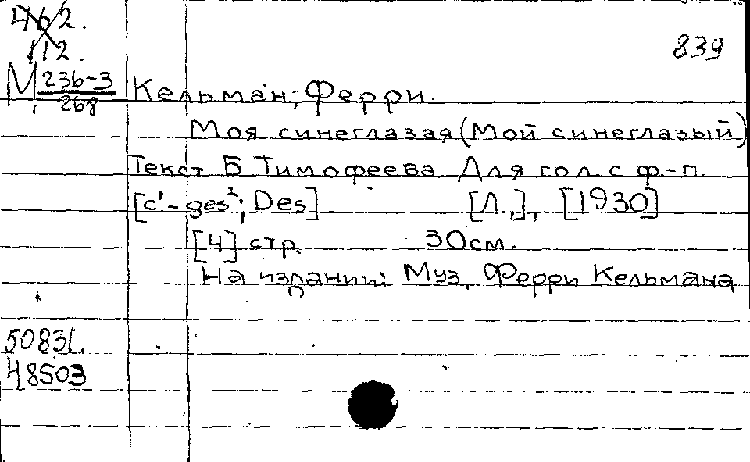 462.
112.
839
М 236-3
268
Кельман, Ферри.
Моя синеглазая (Мой синеглазый)
Текст Б. Тимофеева Для гол. с ф.-п.
[c¹-ges²; Des] [Л.], [1930]
[4] стр. 30см.
На издании: Муз. Ферри Кельмана
48503